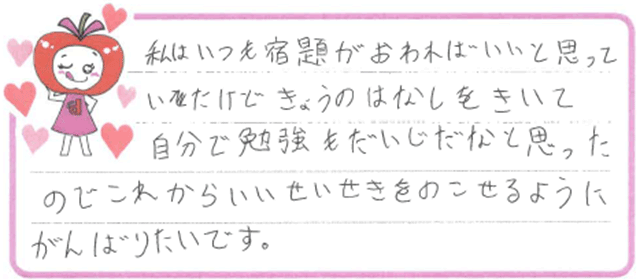 私はいつも宿題がおわればいいと思って
いましたけど きょうのはなしをきいて
自分で勉強もだいじだなと思った
のでこれからいいせいせきをのこせるように
がんばりたいです。